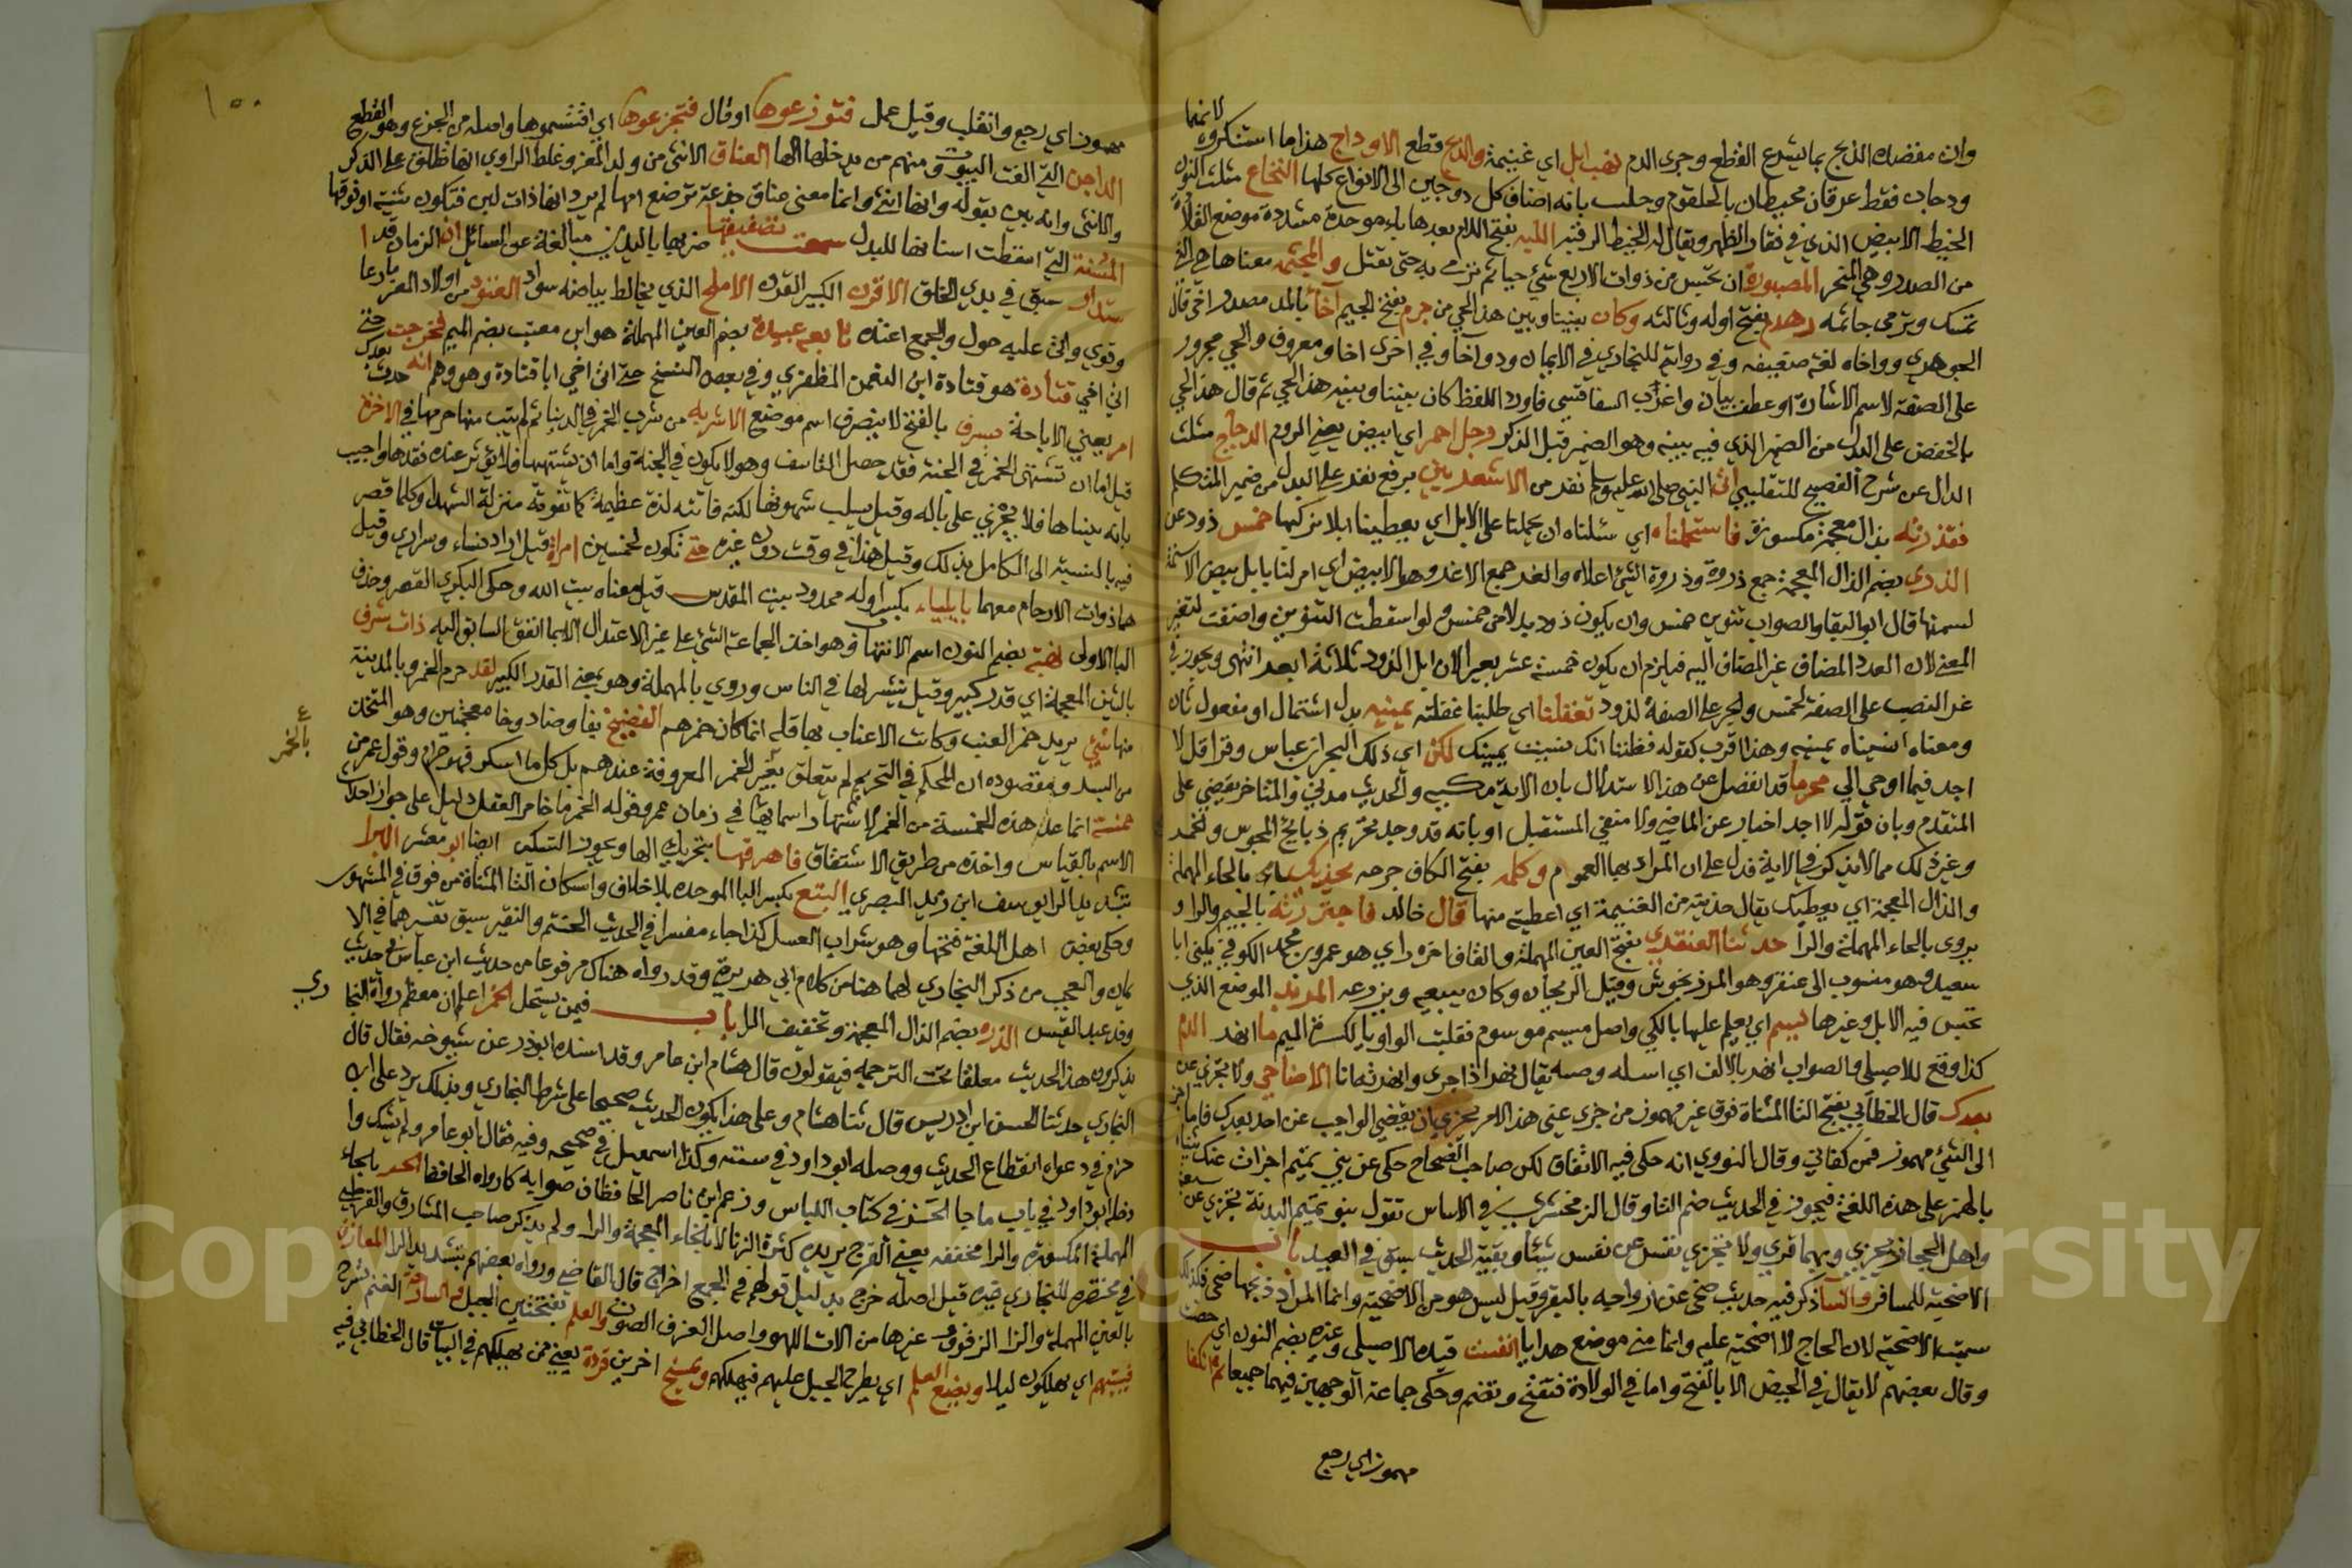 لانهما
وان مقصده الذبح بما يسرع القطع وجرى الدم نهب ابل اي غنيمة والذبح قطع الاوداج هذا ما استنكروه
ودجان فقط عرقان محيطان بالحلقوم وجلب بانه اضاف كل دوجين الى الانواع كلها النخاع مثلث النون
الخيط الابيض الذي في فقار الظهر ويقال له الخيط الرقبة اللبه بفتح اللام بعدها باء موحدة مشددة موضع القلادة
من الصدر وهي المنحر المصبورة ان تحبس من ذوات الاربع شئ حيا ثم ترمى به حتى يقتل والمجثمة معناها هي التي
تمسك وترمى جاثمه زهدم بفتح اوله وثالثه وكان بيننا وبين هذا الحي من جرم بفتح الجيم آخا بالمد مصدر آخى قال
الجوهري وواخاه لغة ضعيفه وفي رواية للبخاري في الايمان ود وآخا وفي اخرى اخا ومعروف والحي مجرور
على الصفة لاسم الاشارة او عطف بيان واعرب السفاقسي فاورد اللفظ كان بيننا وبينه هذا الحي ثم قال هذا الحي
بالخفض على البدل من الضمير الذي فيه بينه وهو الضمير قبل الذكر رجل احمر اي ابيض يعني الروم الدجاج مثلث
الدال عن شرح الفصيح للتقلبيبي اتى النبي صلى الله عليه وسلم نفر من الاشعريين برفع نفر على البدل من ضمير المتكلم
فقذرته بذال معجمة مكسورة فاستحملناه اي سئلناه ان يحملنا على الابل اي يعطينا ابلا نركبها خمس ذود عن
الذري بضم الذال المعجمة جمع ذروة وذروة الشئ اعلاه والغر جمع الاغر وهو الابيض اي امر لنا بابل بيض الاسنمة
لسمنها قال ابو البقا والصواب تنوين خمس وان يكون ذود بدلا من خمس ولو اسقطت التنوين واضفت لتغير
المعنى لان العدد المضاف غير المضاف اليه فيلزم ان يكون خمسة عشر بعيرا لان ابل الذود ثلاثة ابعد انتهى ويجوز في
غر النصب على الصفة لخمس والجر على الصفة لذود تغفلنا اي طلبنا غفلته يمينه بدل اشتمال او مفعول ثان
ومعناه انسيناه يمينه وهذا اقرب كقوله فظننا انك نسيت يمينك لكن اي ذلك البحر ابن عباس وقرا قل لا
اجد فيما اوحي الي محرما قد انفصل عن هذا الاستدلال بان الاية مكيه والحديث مدني والمتاخر يقضي على
المتقدم وبان قوله لا اجد اخبار عن الماضي ولا منفي المستقبل او بانه قد وجد تحريم ذبايح المجوس
وغير ذلك مما لا يذكر في الاية فدل على ان المراد بها العموم وكلمه بفتح الكاف جرحه يحذيك بالحاء المهملة
والذال المعجمة اي يعطيك يقال حذيته من الغنيمة اي اعطيته منها قال خالد فاجتررته بالجيم والرا و
يروى بالحاء المهملة والرا حدثنا العنقزي بفتح العين المهملة والقاف اخره زاي هو عمرو بن محمد الكوفي يكنى ابا
سعيد وهو منسوب الى عنقز وهو المرذنجوش وقيل الريحان وكان يبيعه ويزرعه المربد الموضع الذي
تحبس فيه الابل وغيرها ليسم اي يعلم عليها بالكي واصل ميسم موسوم فقلبت الواو يا لكسرة الميم ما انهر الدم
كذا وقع للاصيلي والصواب انهر بالالف اي اسله وصبه يقال نهر اذا جرى وانهرته انا الاضاحي ولا تجزي عن
بعدك قال الخطابي بفتح التا المثناة فوق غير مهموز من جزى عني هذا الامر يجزي ان يقضي الواجب عن احد بعدك فاما
الى الشئ مهموز فمن كفاني وقال النووي انه حكى فيه الاتفاق لكن صاحب الصحاح حكى عن بني تميم اجزات عنك شاة
بالهمز على هذه اللغة فيجوز في الحديث ضم التا وقال الزمخشري في الاساس تقول بنو تميم البدنة تجزي عن سبعة
واهل الحجاز تجزي وبهما قري ولا تجزي نفس عن نفس شيئا وبقية الحديث سبق في العيد باب
الاضحية للمسافر والنسا ذكر فيه حديث ضحى عن ازواجه بالبقر وقيل ليس هو من الاضحية وانما المراد ذبحها ضحى فكذلك
سميت الاضحية لان الحاج لا اضحية عليه وانما منى موضع هدايا انفست قيده الاصيلي وغيره بضم النون اي حضت
وقال بعضهم لا يقال في الحيض الا بالفتح واما في الولادة فتفتح وتضم وحكى جماعة الوجهين فيهما جميعا ثم انكفا
مهموز اي رجع
١٥٠
مهموز اي رجع وانقلب وقيل عمل فتوزعوها او قال فتجزعوها اي اقتسموها واصله من الجزع وهو القطع
الداجن التي الفت البيوت ومنهم من يدخلها الها العناق الانثى من ولد المعز وغلط الراوي انها طلق على الذكر
والانثى وانه بين بقوله وانها انثى وانما معنى عناق جذعة ترضع امها لم يرد انها ذات لبن فتكون ثنية او فوقها
المسنة التي اسقطت اسنانها للبدل سمعت تصفيقها ضربها باليدين مبالغة عن السائل ان الزمان قد ا
ستدار سبق في بدي الخلق الاقرن الكبير القرن الاملح الذي يخالط بياضه سواد العتود من اولاد المعز ما رعا
وقوي واتى عليه حول والجمع اعتدة تابعه عبيدة بضم العين المهملة هو ابن معتب بضم الميم فخرجت حتى
اتى اخي قتادة هو قتادة ابن النعمن الظفري وفي بعض النسخ حتى اتى اخي ابا قتادة وهو وهم انه حدث بعدك
امر يعني الاباحة بسرف بالفتح لا ينصرف اسم موضع الاشربه من شرب الخمر في الدنيا ثم لم يتب منها حرمها في الاخرة
قيل اما ان تشتهى الخمر في الجنة فقد حصل التاسف وهو لا يكون في الجنة واما ان تشتهيها فلا يؤثر عنده فقدها واجيب
بانه ينساها فلا يجزي على باله وقيل يسلب شهوتها لكنه فاتته لذة عظيمة كما تفوته منزلة الشهدا وكلما قصر
فيه بالنسبة الى الكامل بذلك وقيل هذا في وقت دون غيره حتى تكون لخمسين امراة قيل اراد نساء وسراري وقيل
هما ذوات الارحام معهما بايلياء بكسر اوله محمدود بيت المقدس قيل معناه بيت الله وحكى البكري القصر وحذف
اليا الاولى نهبة بضم النون اسم الانتهاب وهو اخذ الجماعة الشئ على غير الاعتدال الا بما اتفق السابق اليه ذات شرف
بالشين المعجمة اي قدر كبير وقيل يتشرف لها في الناس وروي بالمهملة وهو بمعنى القدر الكبير لقد حرم الخمر وبالمدينة
منها شئ يريد خمر العنب وكانت الاعناب بها قله انما كان خمرهم الفضيخ بفا وضاد وخا معجمتين وهو المتخذ
من البسر ومقصوده ان المحكم في التحريم لم يتعلق بغير الخمر المعروفة عندهم بل كل ما اسكر فهو حرام وقول عمر من
ع
بالخمر
خمسة انما عد هذه الخمسة من الخمر لاشتهار اسمائها في زمان عمر وقوله الخمر ما خامر العقل دليل على جواز احداث
الاسم بالقياس واخذه من طريق الاشتقاق فاهرقها بتحريك الها وبجوز التسكين ايضا ابو معشر البرا
بتشديد الرا يوسف ابن زيد البصري البتع بكسر البا الموحده بلا خلاف واسكان التا المثناة من فوق في المشهور
وحكى بعض اهل اللغة فتحها وهو شراب العسل كذا جاء مفسرا في الحديث الحنتم والنقير سبق تفسيرهما في الا
يمان والعجب من ذكر البخاري لهما هنا من كلام ابي هريرة وقد رواه هناك مرفوعا من حديث ابن عباس في حديث
وفد عبد القيس الذره بضم الذال المعجمة وتخفيف الرا باب فيمن يستحل الخمر اعلم ان معظم رواة البخا
ري
يذكرون هذا الحديث معلقا تحت الترجمه فيقولون قال هشام ابن عامر وقد اسنده ابو ذر عن شيوخه فقال قال
البخاري حدثنا الحسن ابن ادريس قال ثنا هشام وعلى هذا يكون الحديث صحيحا على شرط البخاري وبذلك يرد على ابن
حزم في دعواه انقطاع الحديث ووصله ابو داود في سننه وكذا اسمعيل في صحيحه وفيه فقال ابو عامر ولم يشك وا
دخله ابو داود في باب ما جا الخز في كتاب اللباس وزعم ابن ناصر الحافظ ان صوابه كما رواه الحافظ الحر بالحاء
المهملة المكسورة والرا مخففه يعني الفرج يريد كثرة الزنا لا بالخاء المعجمة والرا ولم يذكر صاحب المشارق والقرطبي
في مختصره للبخاري غيره قيل اصله خرج بدليل قولهم في الجمع اخراج قال القاضي ورواه بعضهم بتشديد الرا المعازف
بالعين المهملة والزا الزفوف وغيرها من الات اللهو واصل العزف الصوت والعلم بفتحتين الجبل والسارحة الغنم تسرح
فيبيتهم اي يهلكون ليلا ويضع العلم اي يطرح الجبل عليهم فيهلكهم ويمسخ اخرين قردة يعني ممن يهلكهم في البيات قال الخطابي فيه
Copyright © King Saud University